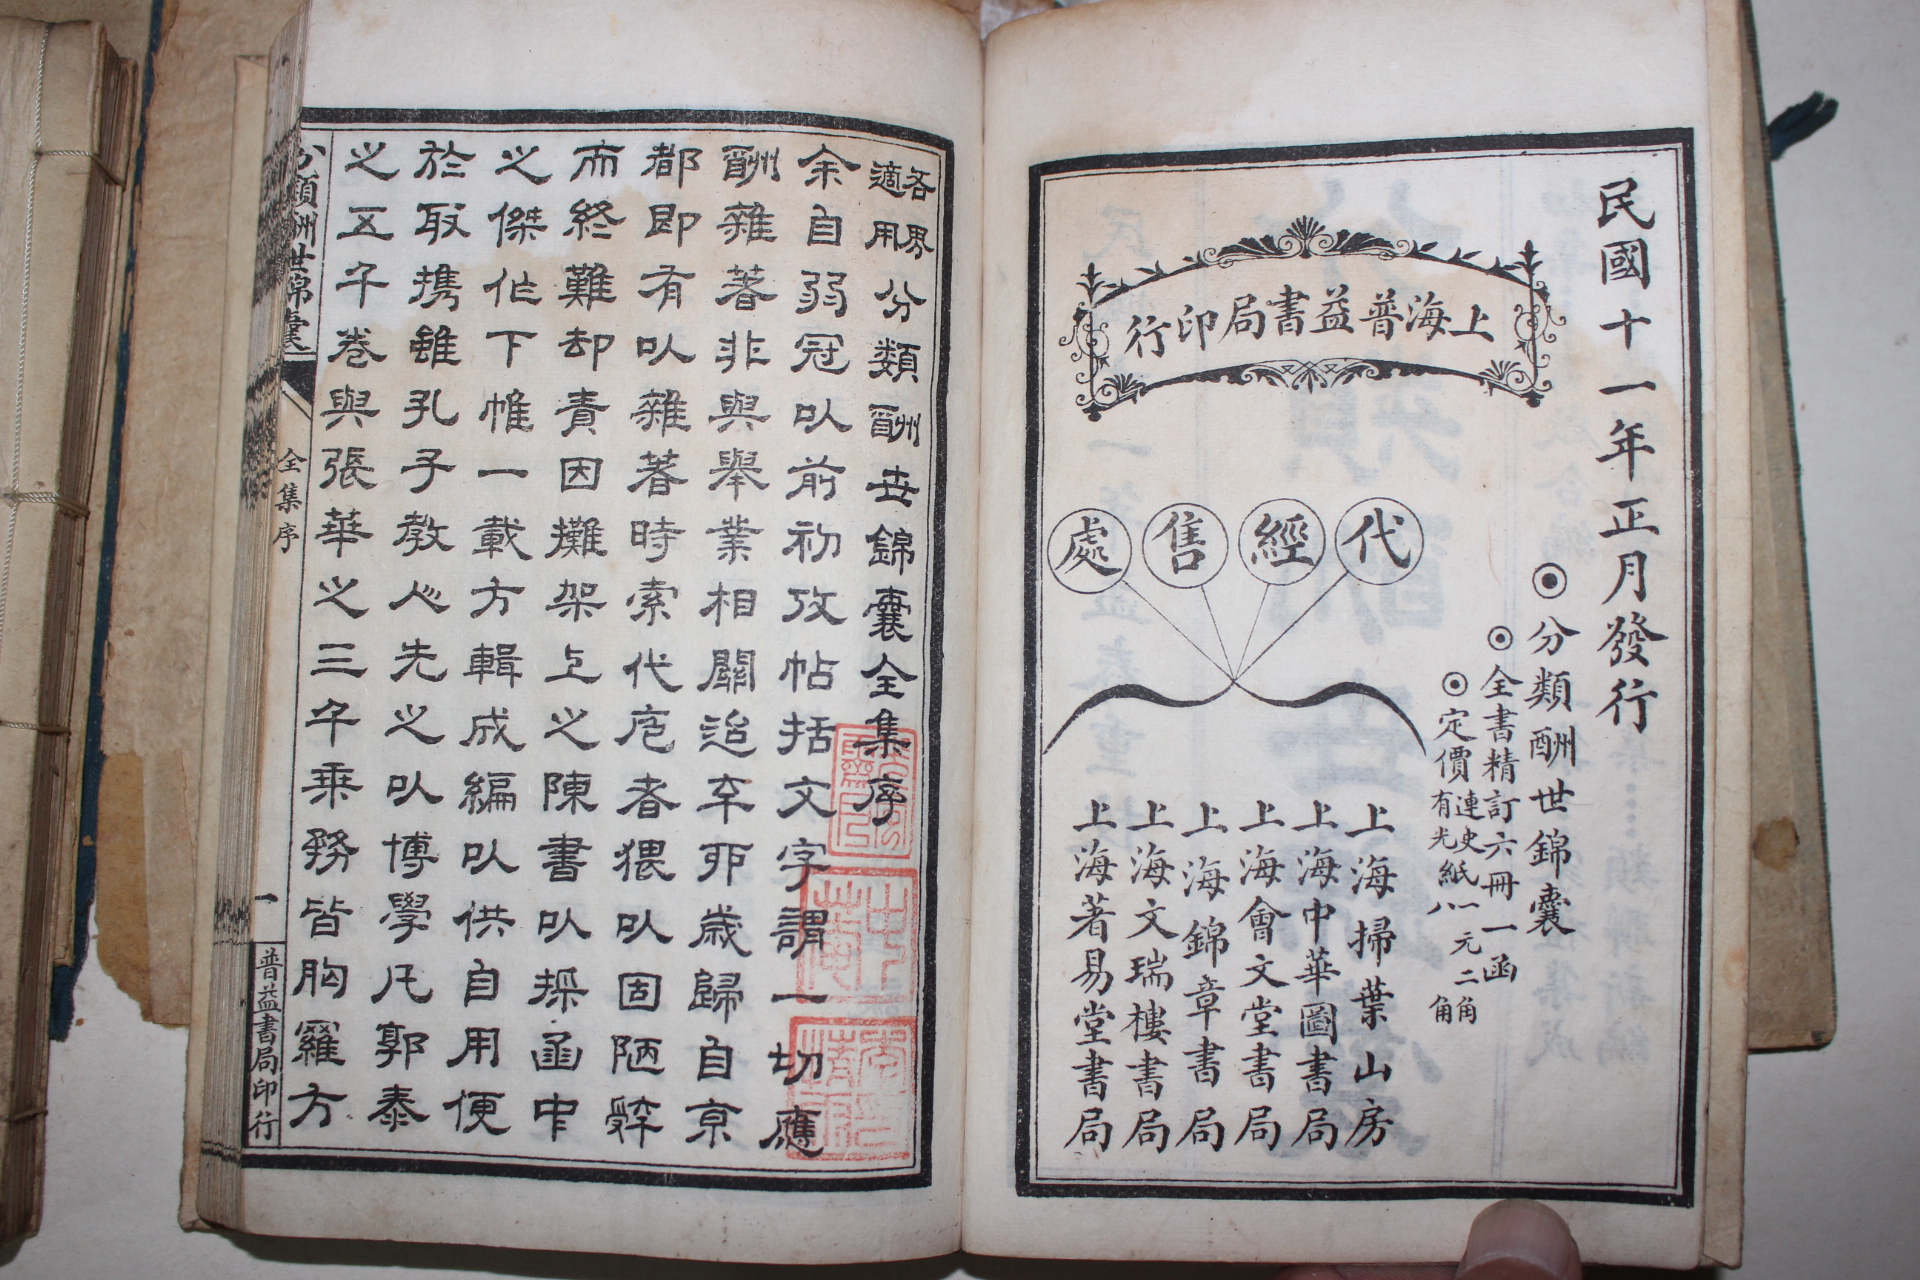 民國十一年正月發行
◉分類酬世錦囊
⊙全書精訂六冊一函
⊙定價連史紙一元二角
有光紙八角
上海普益書局印行
代經售處
上海掃葉山房
上海中華圖書局
上海會文堂書局
上海錦章書局
上海文瑞樓書局
上海著易堂書局
各界適用分類酬世錦囊全集序
余自弱冠以前初攷帖括文字謂一切應
酬雜著非與舉業相關迨辛卯歲歸自京
都即有以雜著時索代庖者猥以固陋辤
而終難却責因攤架上之陳書以探函中
之傑作下帷一載方輯成編以供自用便
於取携雖孔子教人先之以博學凡郭泰
之五千卷與張華之三千乘務皆胸羅方
分類酬世錦囊
全集序
一
普益書局印行